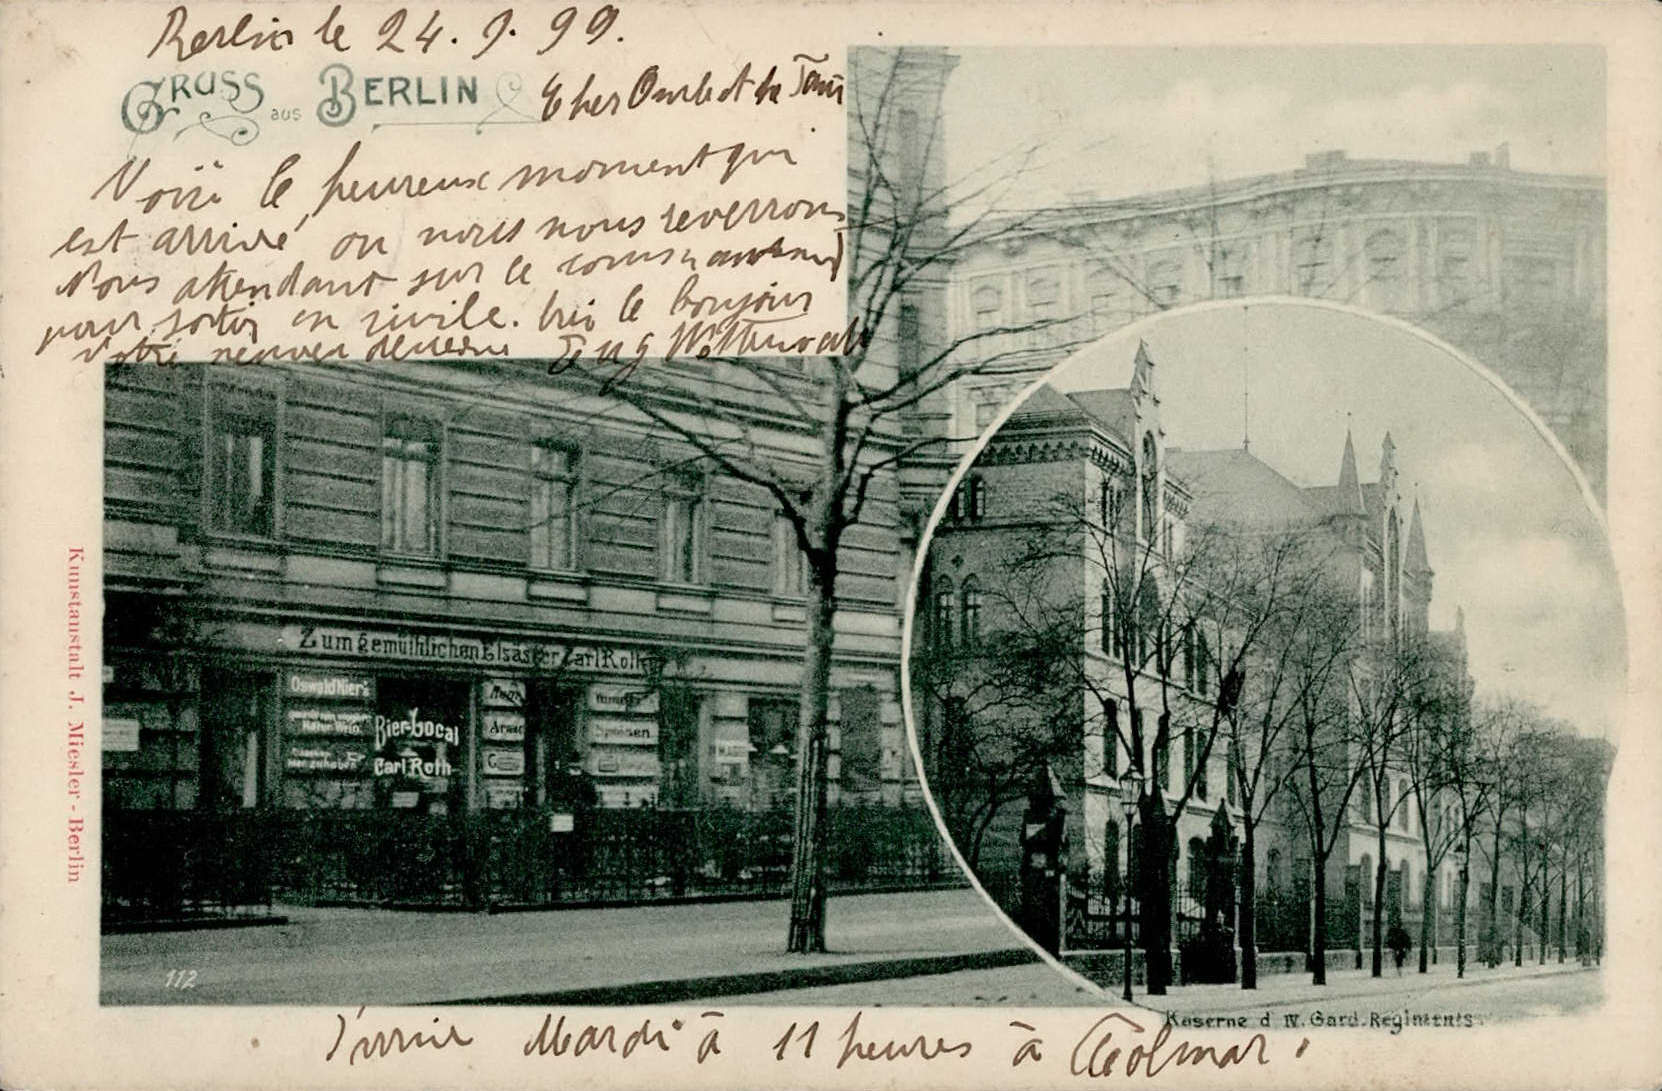 Berlin le 24. 9. 99.
GRUSS aus BERLIN
Cher Oncle et
Voiçi le heureux moment qui
est arrivé ou nous nous reverrons
Nous attendant sur le
pour sortir en sivile. le bonjour
Votre neuveu Eug
Zum gemüthlichen Elsässer Carl Roth
Oswald Nier's
Bier-Local
Carl Roth
Speisen
Kunstanstalt J. Miesler - Berlin
112
Kaserne d IV. Gard. Regiments.
J'arrive Mardi à 11 heures à Colmar.